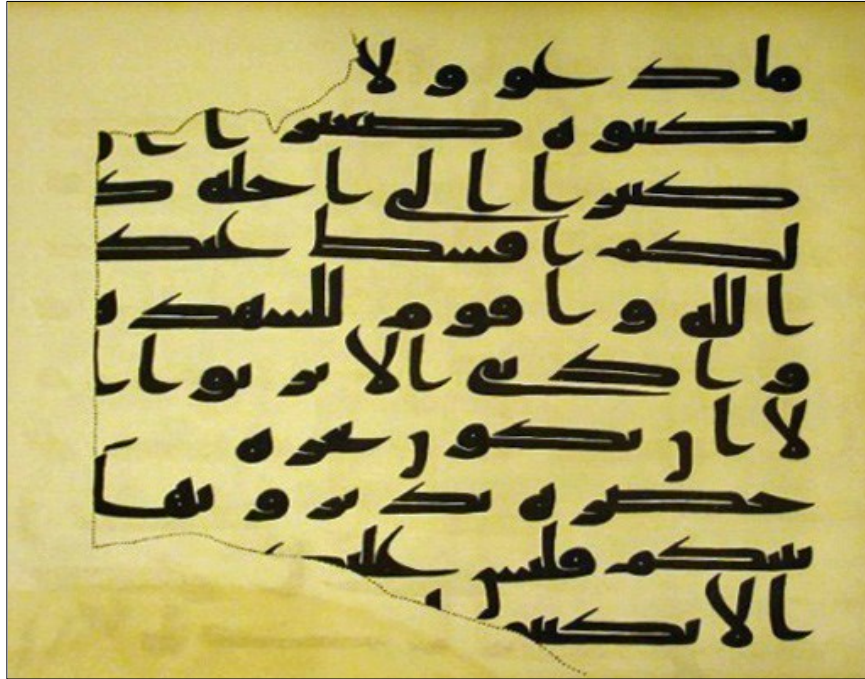 ما دعوا ولا
تكتبوه صغيرا او
كبيرا الى اجله ذ
لكم اقسط عند
الله واقوم للشهدة
وادنى الا ترتابوا ا
لا ان تكون تجرة
حضرة تديرونها بي
نكم فليس عليكم
الا تكتبو